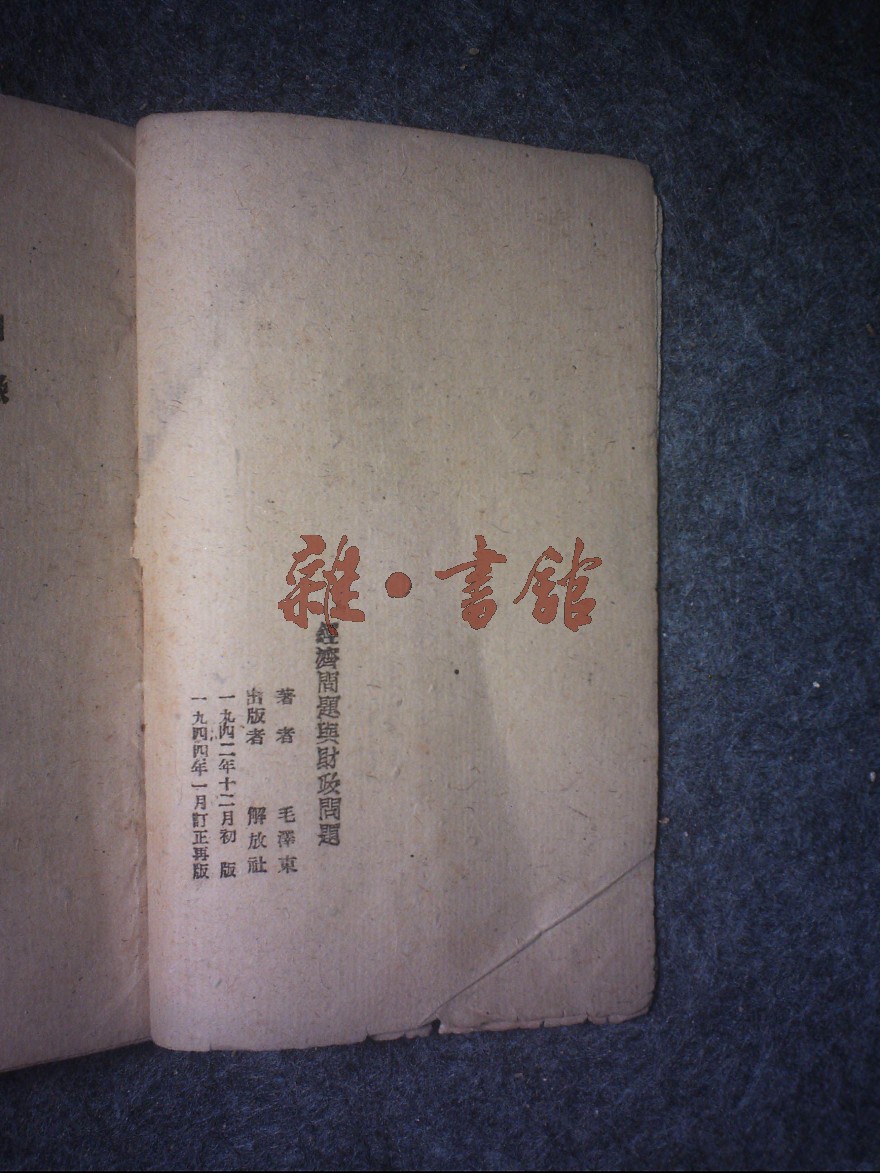 雜·書館
經濟問題與財政問題
著者 毛澤東
出版者 解放社
一九四二年十二月初版
一九四四年一月訂正再版